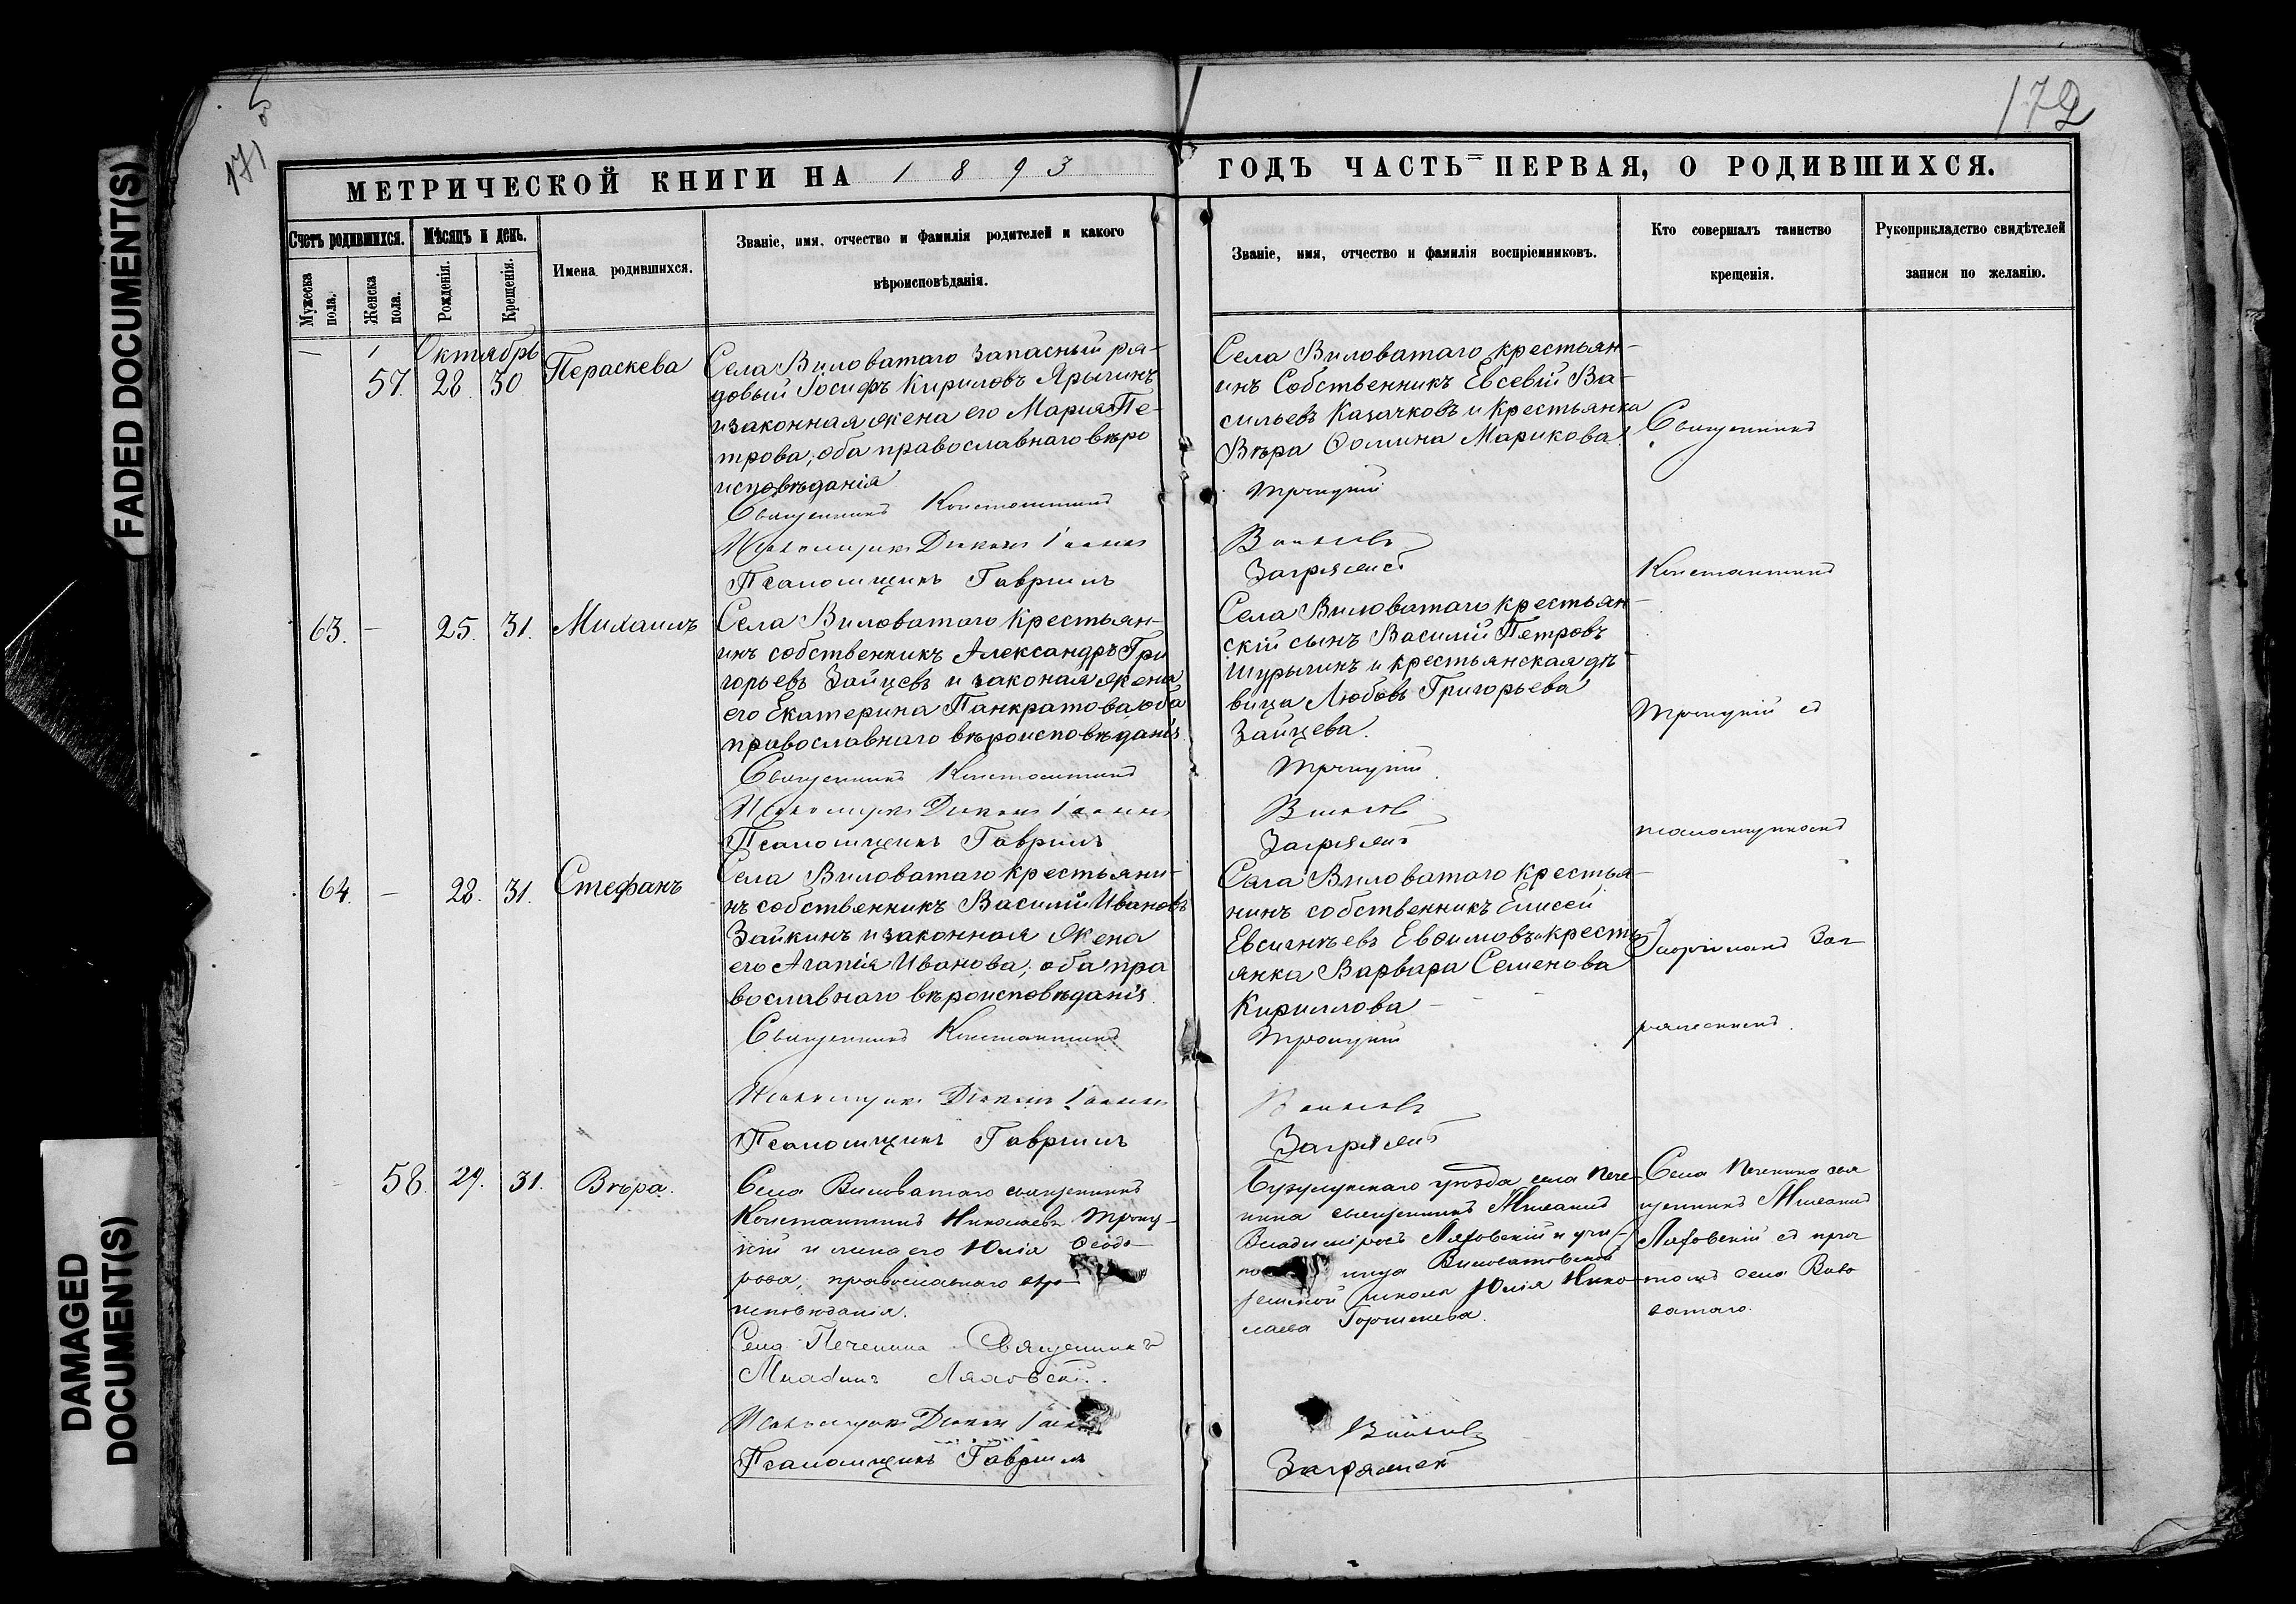 FADED DOCUMENT(S)
DAMAGED DOCUMENT(S)
171
172
МЕТРИЧЕСКОЙ КНИГИ НА 1893 ГОДЪ ЧАСТЬ ПЕРВАЯ, О РОДИВШИХСЯ.
Счетъ родившихся.
Мужеска пола.
Женска пола.
Мѣсяцъ и день.
Рожденія.
Крещенія.
Имена родившихся.
Званіе, имя, отчество и фамилія родителей и какого
вѣроисповѣданія.
Званіе, имя, отчество и фамилія воспріемниковъ.
Кто совершалъ таинство
крещенія.
Рукоприкладство свидѣтелей
записи по желанію.
Октябрь
57. 28. 30 Пераскева
Села Виловатаго запасный ря-
довый Іосифъ Кириловъ Ярыгинъ
и законная жена его Мария Пе-
трова, оба православнаго вѣро
исповѣданія
Священникъ Константинъ
Псаломщикъ Діаконъ Іоаннъ
Псаломщикъ Гавріилъ
Села Виловатаго крестьян-
инъ Собственникъ Евсевій Ва-
сильевъ Казачковъ и крестьянка
Вѣра Фомина Марикова.
Троицкій
Загряжск
Священникъ
Константинъ
63. — 25. 31. Михаилъ
Села Виловатаго крестьян-
инъ собственникъ Александръ Гри
горьевъ Зайцевъ и законая жена
его Екатерина Панкратова, оба
православнаго вѣроисповѣданія.
Священникъ Константинъ
Псаломщикъ Діаконъ Іоаннъ
Псаломщикъ Гавріилъ
Села Виловатаго крестьян-
скій сынъ Василій Петровъ
Шурыгинъ и крестьянская дѣ
вица Любовь Григорьева
Зайцева.
Троицкій
Троицкій съ
псаломщикомъ
64. — 28. 31. Стефанъ
Села Виловатаго крестьяни-
нъ собственникъ Василій Ивановъ
Зайкинъ и законная жена
его Агапія Иванова, оба пра
вославнаго вѣроисповѣданія.
Священникъ Константинъ
Псаломщикъ Діаконъ Іоаннъ
Псаломщикъ Гавріилъ
Села Виловатаго крестья-
нинъ собственникъ Елисей
Евсигнѣевъ Евфимовъ и кресть
янка Варвара Семенова
Кириллова
Троицкій
Гавріиломъ Заг
ряжскимъ.
58. 29. 31. Вѣра.
Села Виловатаго священникъ
Константинъ Николаевъ Троиц-
кій и жена его Юлія Ѳеодо-
рова, православнаго вѣро
исповѣданія.
Села Печенина Священникъ
Ляховскій.
Псаломщикъ Діаконъ
Псаломщикъ Гавріилъ
Бузулукскаго уѣзда села Пече-
нина священникъ
Владиміровъ Ляховскій и учи-
ница Виловатовской
земской школы Юлія Нико-
лаева Горшенева.
Села Печенина свя
щенникъ
Ляховскій съ прич
томъ села Вило
ватаго.